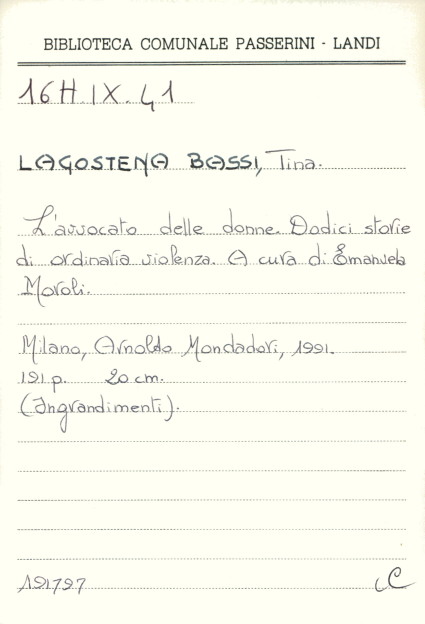 BIBLIOTECA COMUNALE PASSERINI - LANDI
16H.IX.41
LAGOSTENA BASSI, Tina.
L'avvocato delle donne. Dodici storie
di ordinaria violenza. A cura di Emanuela
Moroli.
Milano, Arnoldo Mondadori, 1991.
191 p. 20 cm.
(Ingrandimenti).
191797